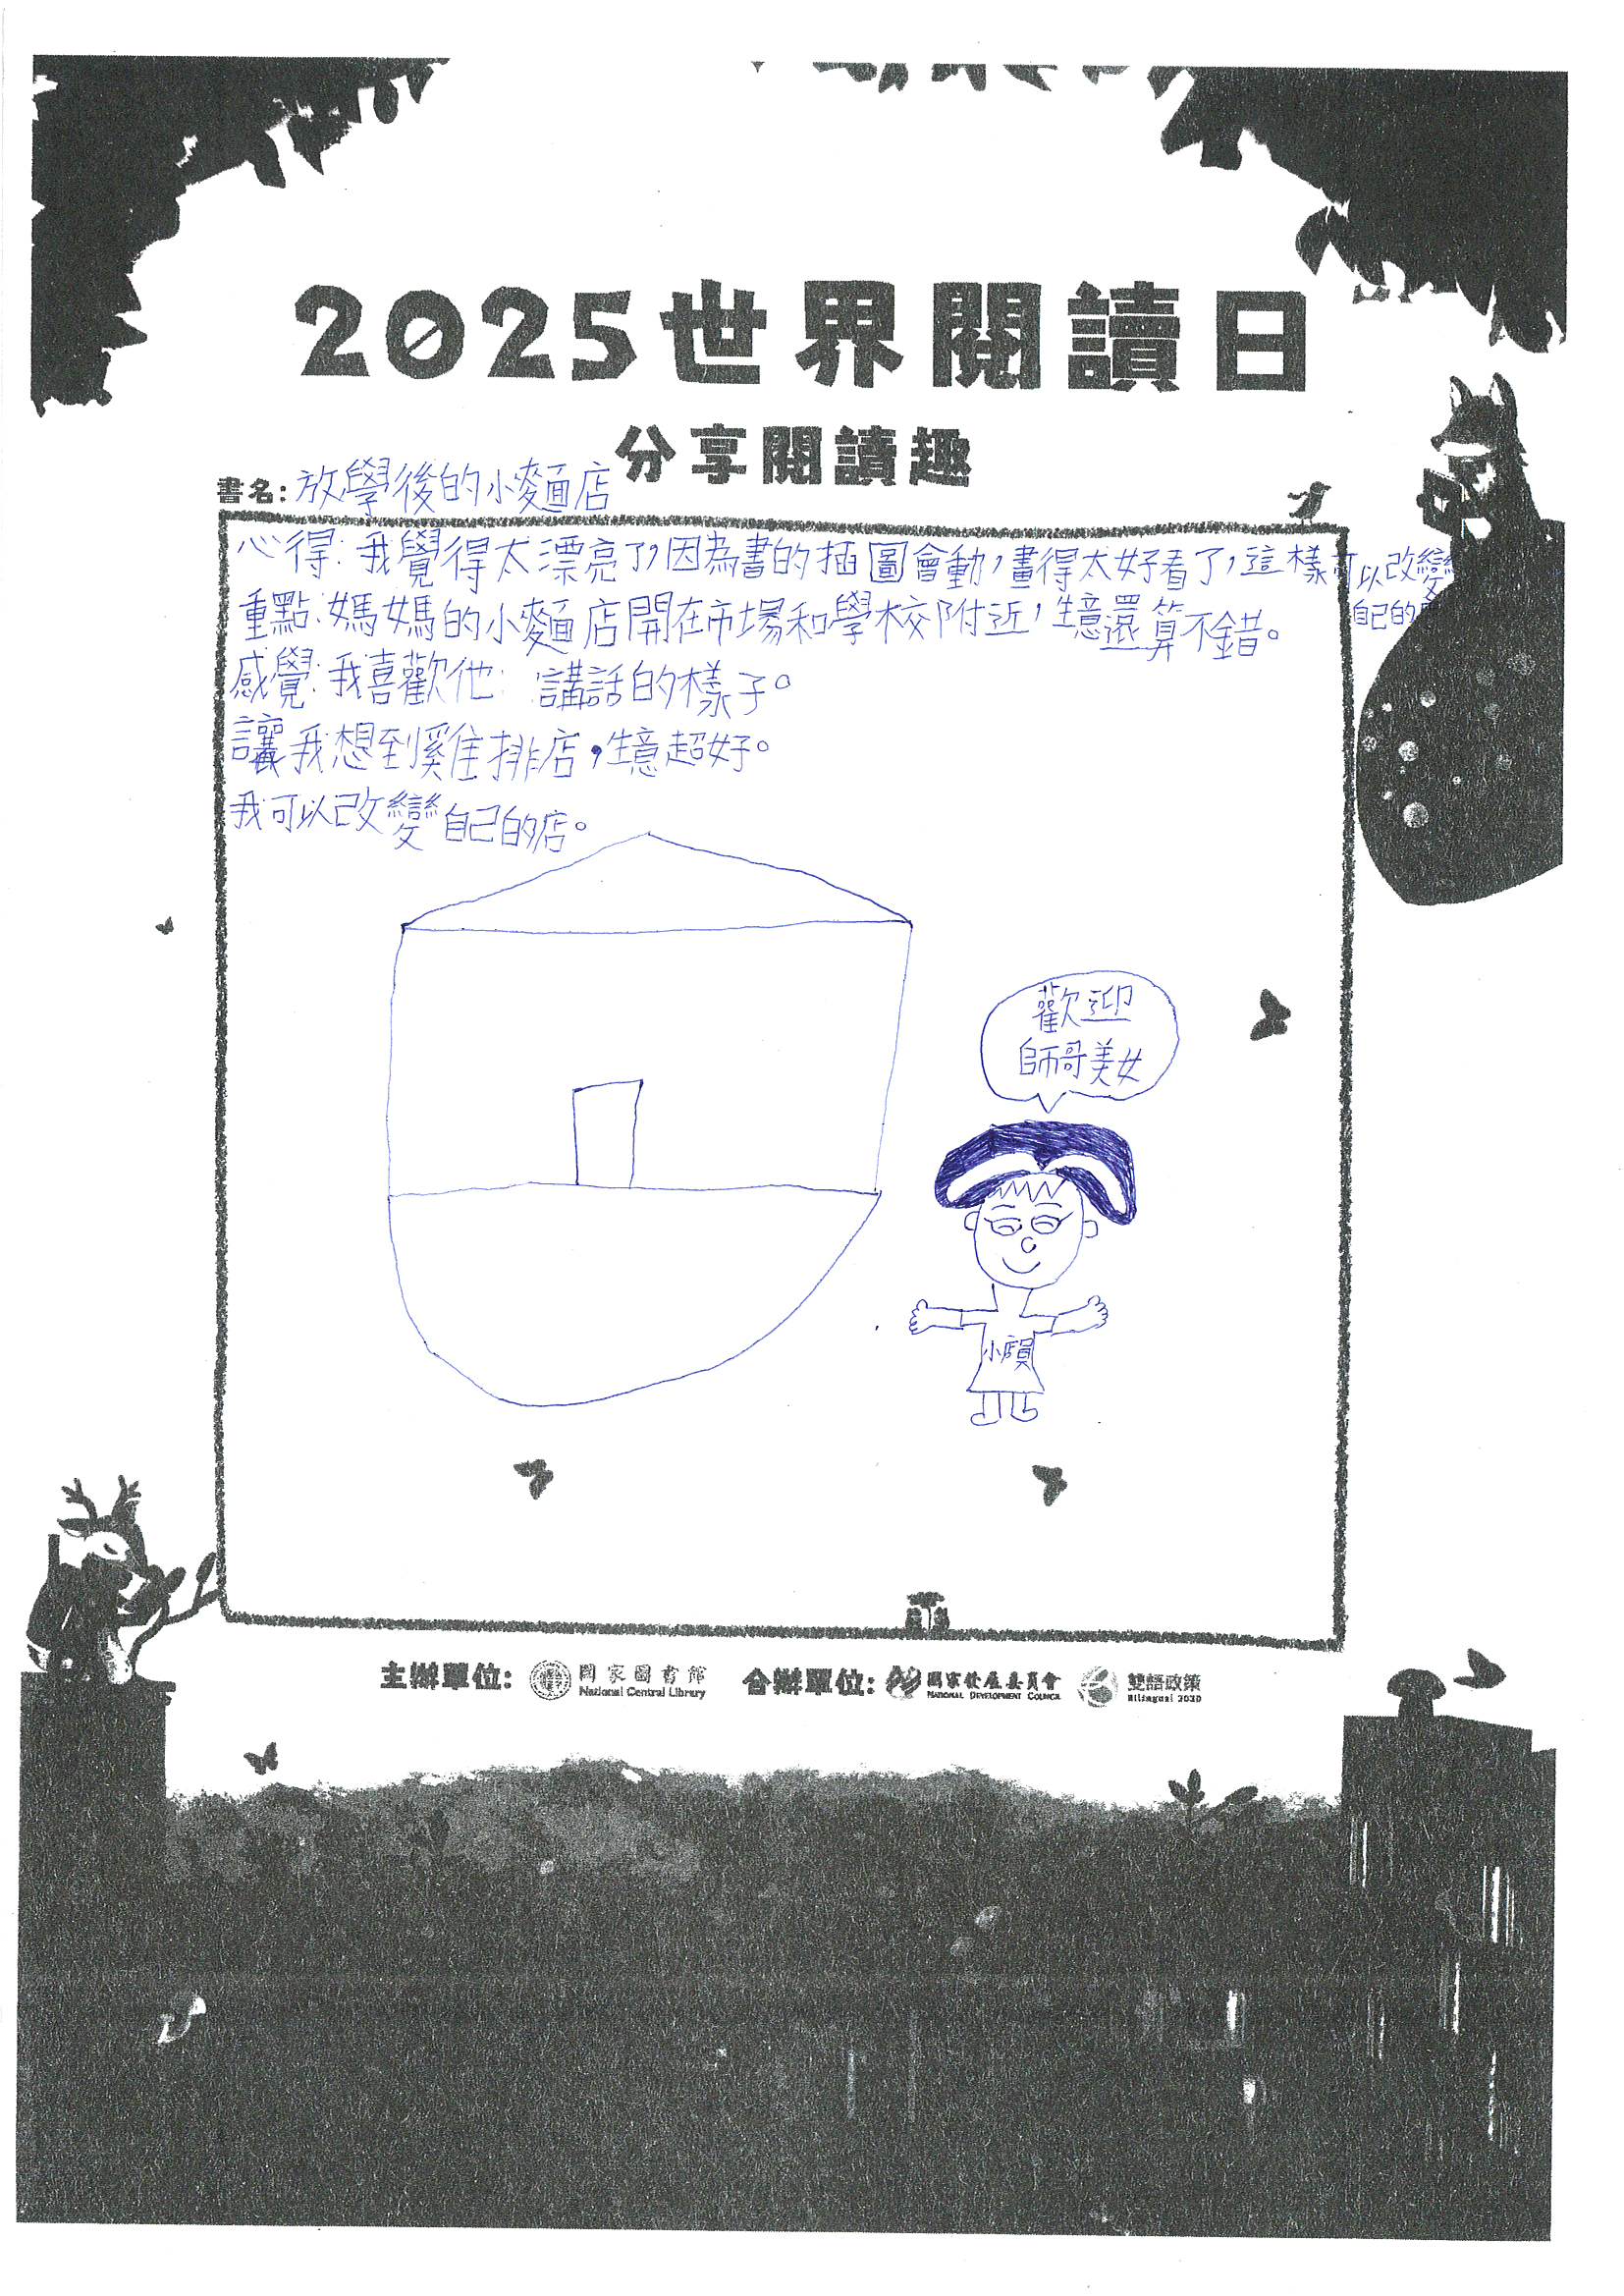 2025世界閱讀日
分享閱讀趣
書名:放學後的小麵店
心得:我覺得太漂亮了,因為書的插圖會動,畫得太好看了,這樣可以改變
自己的
重點:媽媽的小麵店開在市場和學校附近,生意還算不錯。
感覺:我喜歡他 講話的樣子。
讓我想到雞排店,生意超好。
我可以改變自己的店。
歡迎
師哥美女
小店員
主辦單位: 國家圖書館 National Central Library 合辦單位: 國家發展委員會 NATIONAL DEVELOPMENT COUNCIL 雙語政策 Bilingual 2030